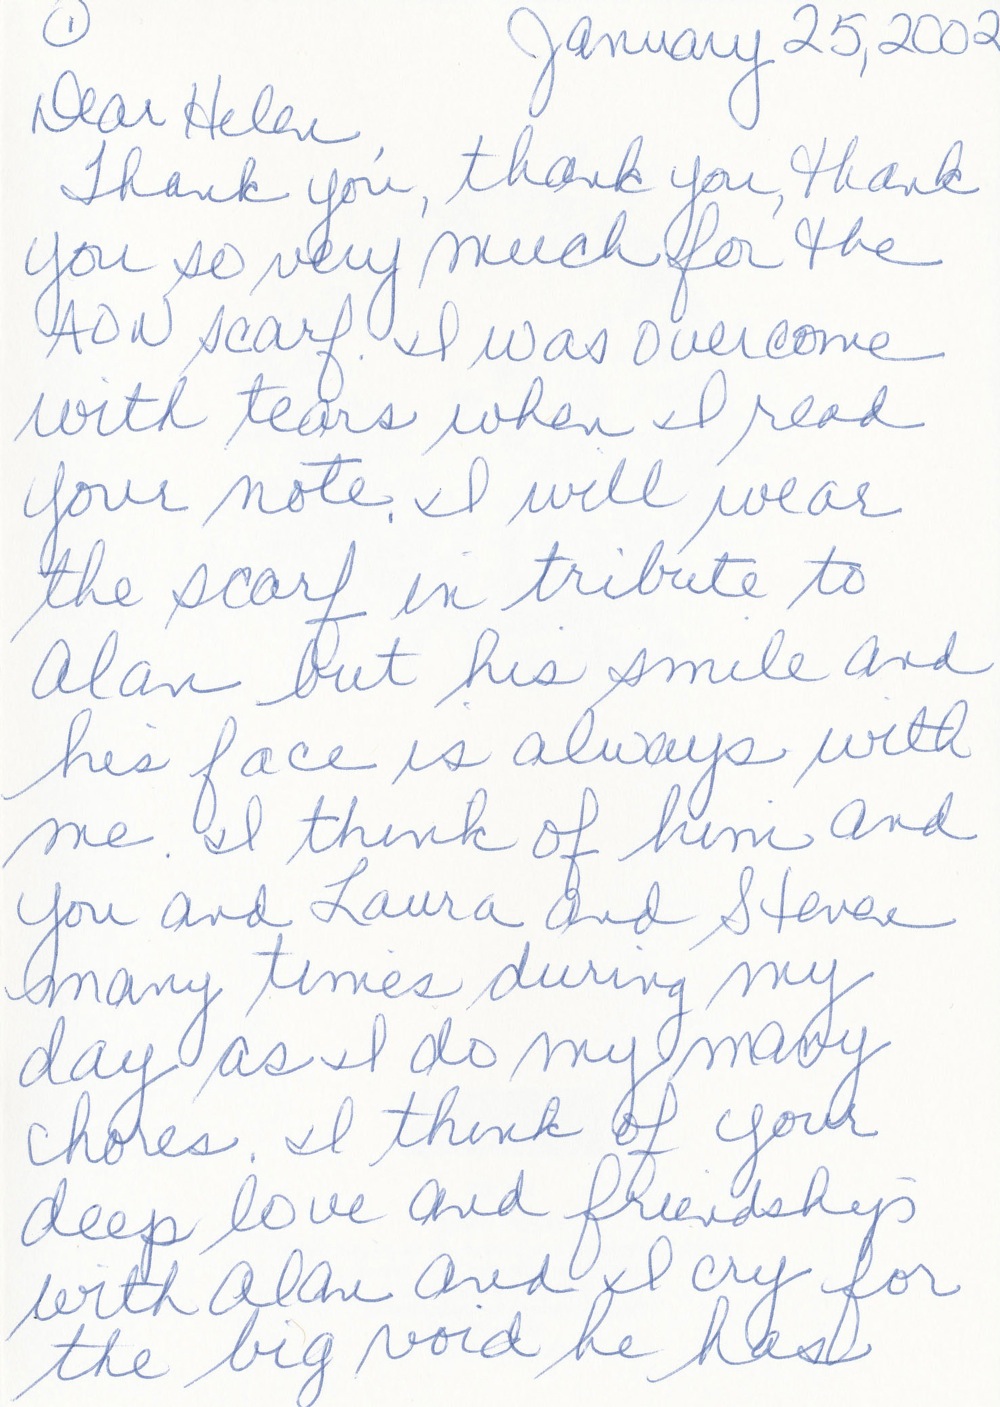 1
January 25, 2002
Dear Helen,
Thank you, thank you, thank
you so very much for the
AON scarf. I was overcome
with tears when I read
your note. I will wear
the scarf in tribute to
Alan but his smile and
his face is always with
me. I think of him and
you and Laura and Steven
many times during my
day as I do my many
chores. I think of your
deep love and friendship
with Alan and I cry for
the big void he has